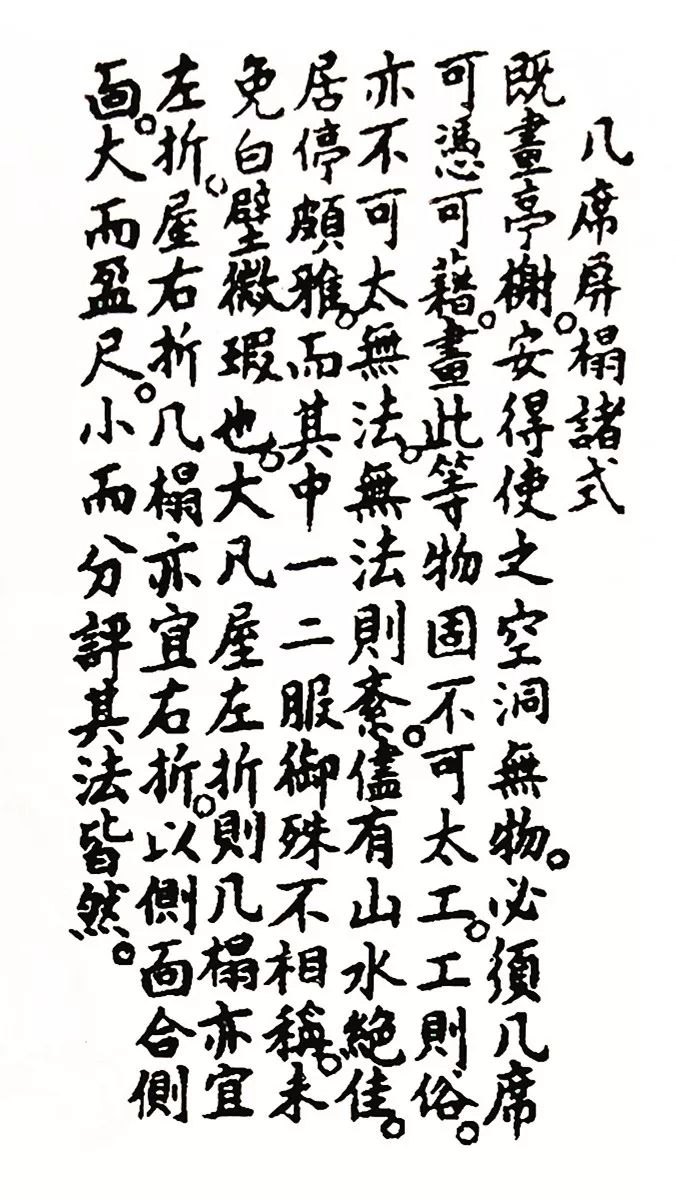 几席屏榻諸式
既畫亭榭。安得使之空洞無物。必須几席
可憑可藉。畫此等物固不可太工。工則俗。
亦不可太無法。無法則紊。儘有山水絕佳。
居停頗雅。而其中一二服御殊不相稱。未
免白壁微瑕也。大凡屋左折則几榻亦宜
左折。屋右折几榻亦宜右折。以側面合側
面。大而盈尺。小而分評其法皆然。